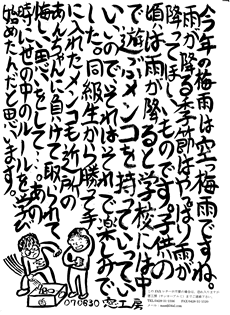 今年の梅雨は空梅雨ですね。
雨が降る季節はやっぱり雨が
降ってほしいものです。子供の
頃は雨が降ると学校には中
で遊ぶメンコを持っていってい
いのでそれはそれで楽しみで
した。同級生から勝って手
に入れたメンコも近所の
あんちゃんに負けて取られて
悔しい思いをして…。あの
時に世の中のルールを学び
始めたんだと思います。
070830 窓工房